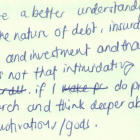 e a better understand
the nature of debt, insura
and investment and tha
is not that intimidating
if I make pr do pr
arch and think deeper ab
motivations/goals.